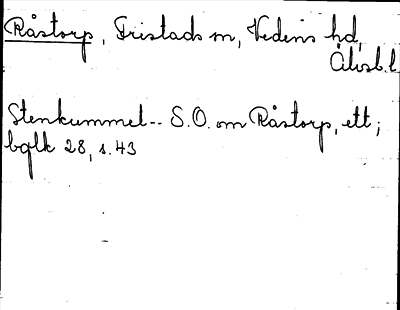 Råstorp, Fristads sn, Vedens hd,
Älvsb. l.
Stenkummel -- S.O. om Råstorp, ett;
bglk 28, s. 43